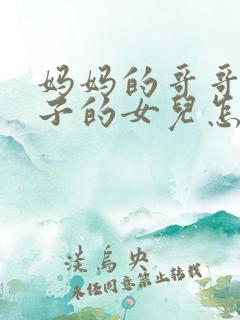 妈妈的哥哥
子的女兒怎
淡烏央
未经同意禁止转载